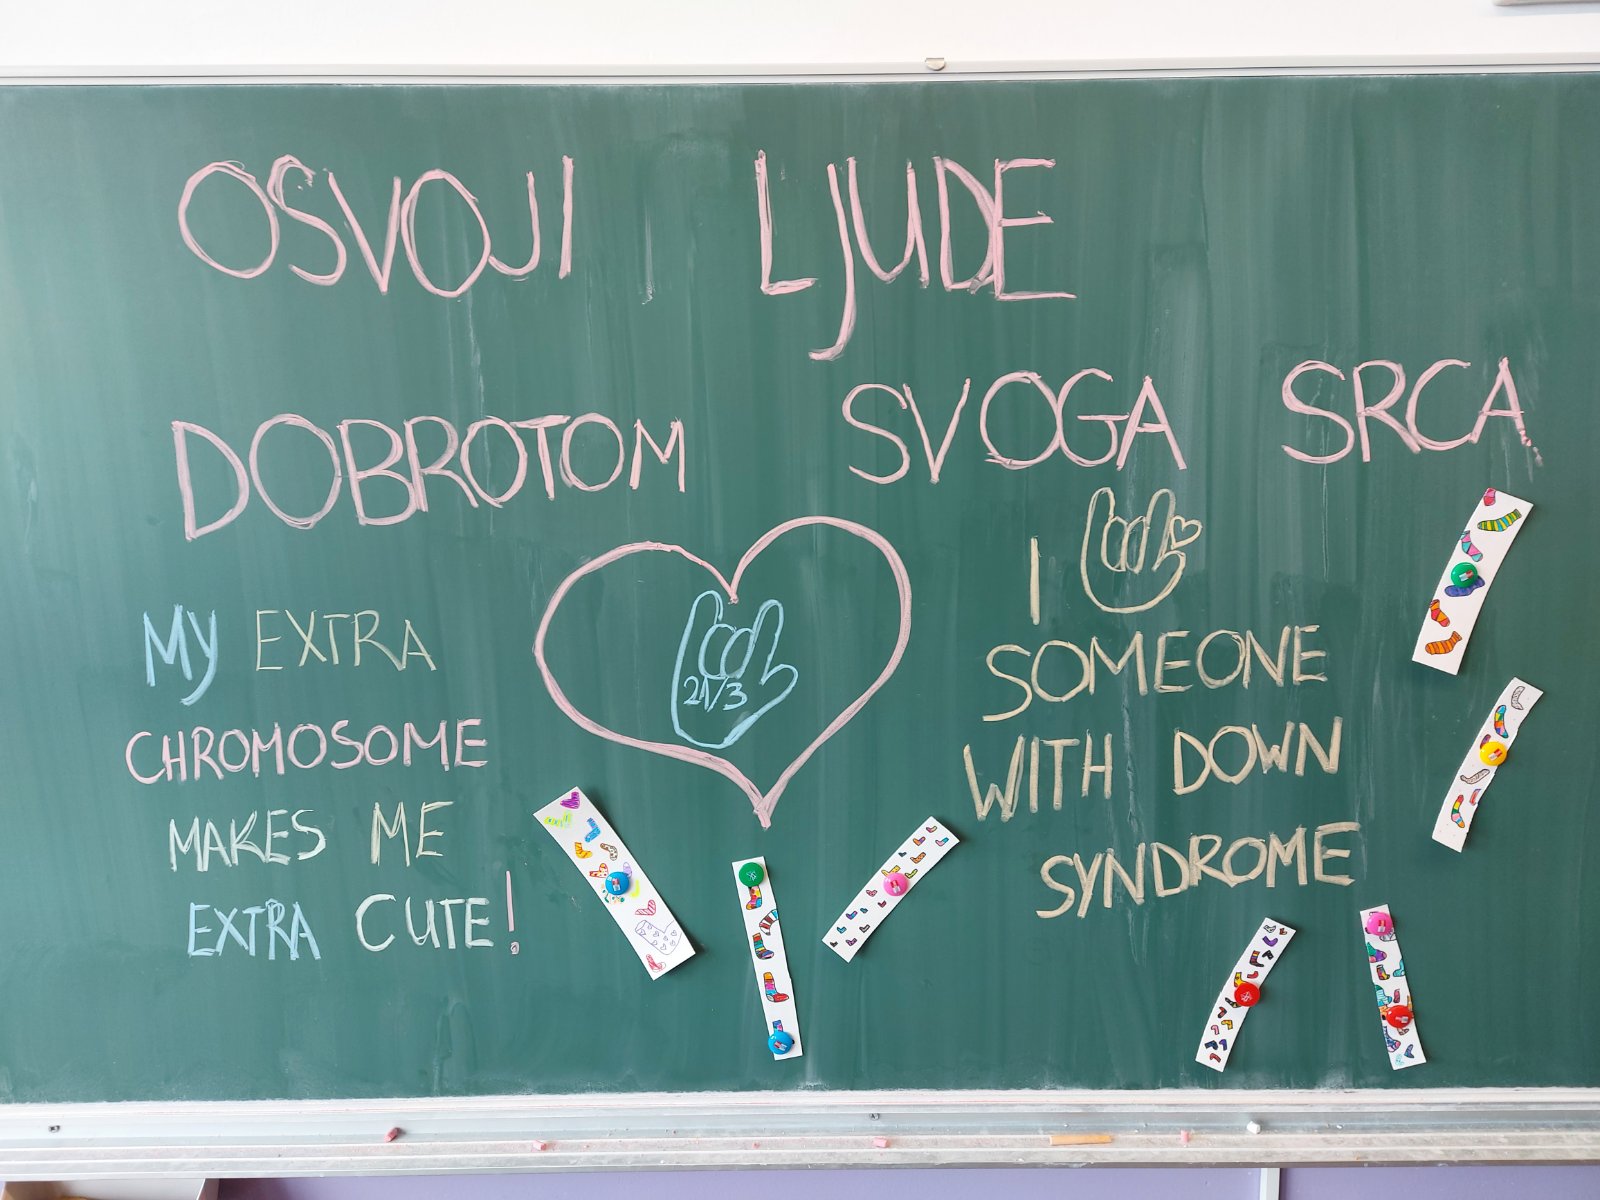 OSVOJI LJUDE
DOBROTOM SVOGA SRCA
MY EXTRA
CHROMOSOME
MAKES ME
EXTRA CUTE!
21/3
I
SOMEONE
WITH DOWN
SYNDROME